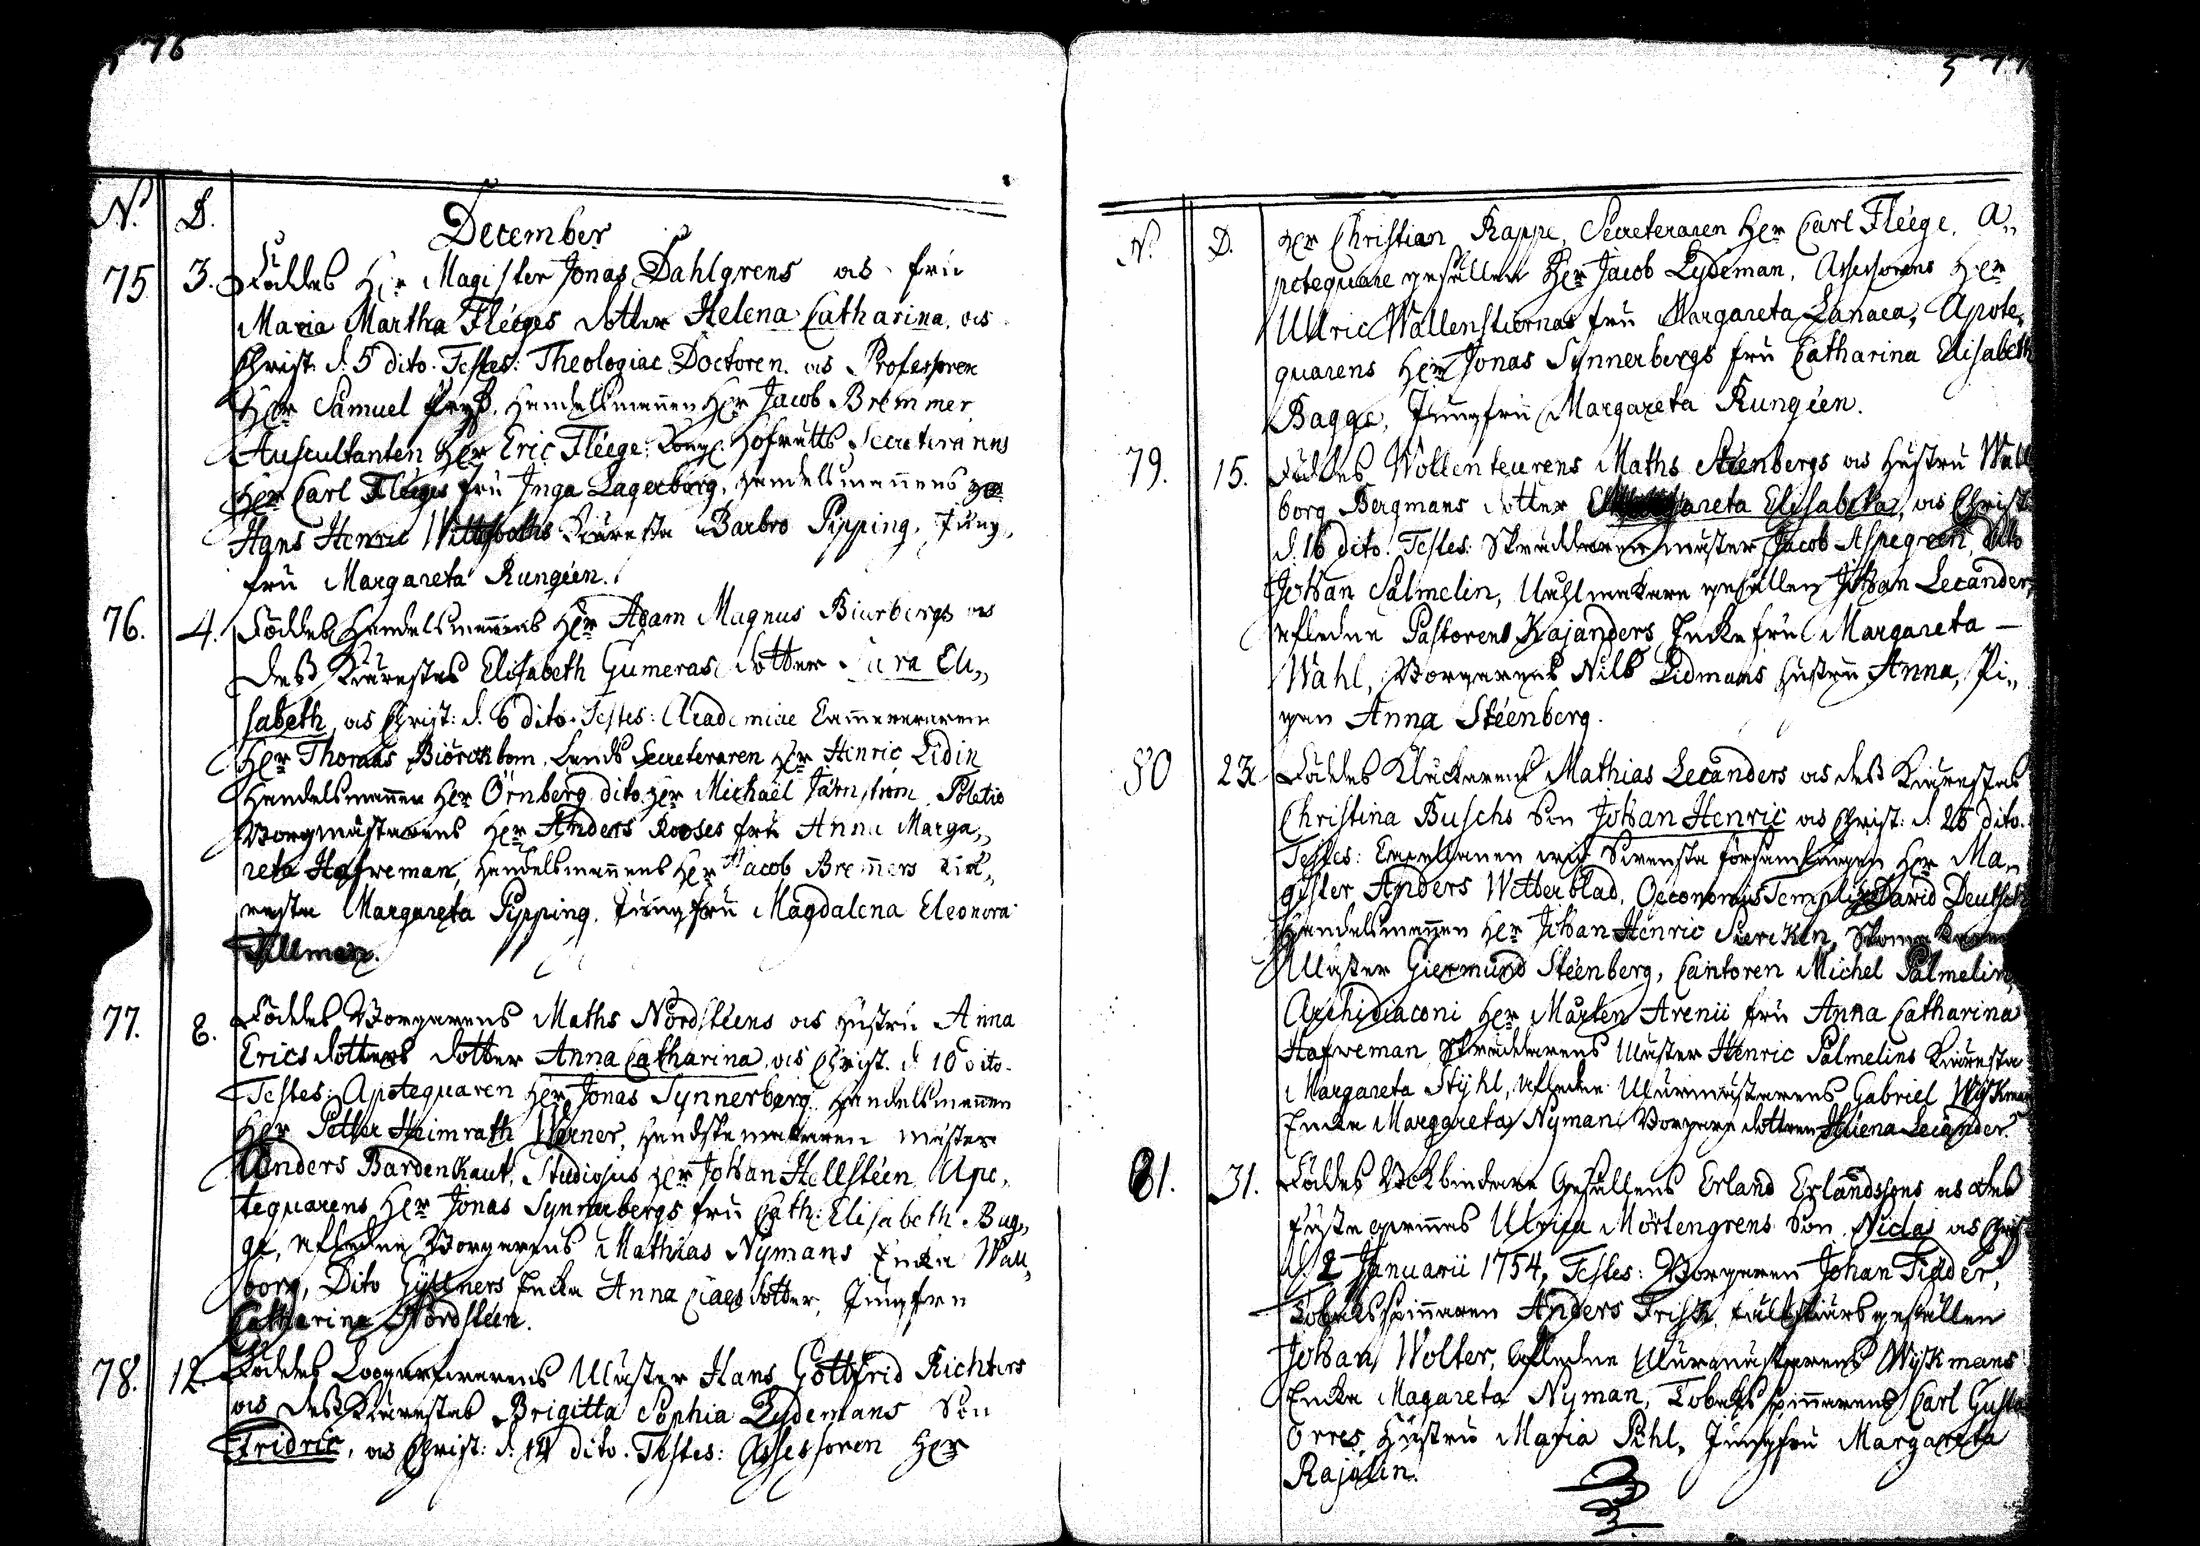 576
N:o D.
December
75 3. Föddes Her Magister Jonas Dahlgrens och fru
Maria Martha Fléeges dotter Helena Catharina, och
Christ: d. 5 dito. Testes: Theologiae Doctoren och Professoren
Her Samuel Pryß, Handelsmannen Her Jacob Bremmer
Auscultanten Her Eric Fléege, Kongl: Hofrätts Secreterarens
Her Carl Fléeges fru Inga Lagerborg, Handelsmannens Her
Hans Henric Wittfooths Käresta Barbro Pipping, Jung,,
fru Margareta Rungéen.
76. 4. Föddes Handelsmannens Her Adam Magnus Biurbergs och
deß Kärestas Elisabeth Gumeras dotter Sara Eli,,
sabeth, och Christ: d. 6 dito. Testes: Academiae Cammereraren
Her Thomas Biörckbom, Lands Secreteraren Her Henric Lidin
Handelsmannen Her Örnberg, dito Her Michaël Järnström, Politie
Borgmästarens Her Anders Rooses fru Anna Marga,,
reta Hafreman, Handelsmannens Her Jacob Bremmers Kiä,,
resta Margareta Pipping, Jungfru Magdalena Eleonora
Tillman.
77. 8. Föddes Borgarens Maths Nordstéens och Hustru Anna
Ericsdotters dotter Anna Catharina, och Christ. d. 10 dito.
Testes: Apotequaren Her Jonas Synnerberg, Handelsmannen
Her Petter Heimrath Werner, Handskemakaren Mäster
Anders Bardenkaut, Studiosus Her Johan Hellstéen, Apo,,
tequarens Her Jonas Synnerbergs fru Cath: Elisabeth Bag,,
ge, afledne Borgarens Mathias Nymans Enka Wall,,
borg, Dito Gyllners Enka Anna Claesdotter, Jungfru
Catharina Nordstéen.
78. 12. Föddes Loogarfwarens Mäster Hans Gottfrid Richters
och deß Kärestas Brigitta Sophia Lydemans Son
Fridric, och Christ: d. 14 dito. Testes: Assessoren Her
577
N:o D.
Her Christian Rappe, Secreteraren Her Carl Fléege, A,,
potequare gesällen Her Jacob Lydeman, Assessorens Her
Ullric Wallenstiernas fru Margareta Lanaea, Apote,,
quarens Her Jonas Synnerbergs fru Catharina Elisabeth
Bagge, Jungfru Margareta Rungéen.
79. 15. Föddes Wollenteurens Maths Stéenbergs och Hustru Wall
borg Bergmans dotter Elisabeta, och Christ
d. 16 dito. Testes: Skräddaren mäster Jacob Aspegreen, dito
Johan Salmelin, Målmakare gesällen Johan Lecander,
afledne Pastorens Kajanders Enke fru Margareta —
Wahl, Borgarens Nils Lidmans Hustru Anna, Pi,,
gan Anna Stéenberg.
80 23. Föddes Kläckarens Mathias Lecanders och deß Kärestas
Christina Buschs Son Johan Henric och Christ: d. 26 dito.
Testes: Capellanen wid Swenska församlingen Her Ma,,
gister Anders Wetterblad, Oeconomus Templi David Deutsch
Handelsmannen Her Johan Henric Siercken, Skomakaren
Mäster Giermund Stéenberg, Cantoren Michel Salmelin,
Archidiaconi Her Mårten Arenii fru Anna Catharina
Hafreman, Skräddarens Mäster Henric Salmelins Käresta
Margareta Stijhl, Afledne Murmästarens Gabriel Wijkmans
Enka Margareta Nyman, Borgare dottren Helena Lecander.
81. 31. Föddes Bokbindare Gesällens Erland Erlandssons och des
fäste qwinnes Ulrica Mörtengrens Son Niclas och Christ
d. 2 Januarii 1754, Testes: Borgaren Johan Fidder,
Tobaksspinnaren Anders Frisk, fältskiärs gesällen
Johan Wolter, Afledne Murmästarens Wijkmans
Enka Magareta Nyman, Tobaks spinnarens Carl Gustaf
Orres Hustru Maria Pihl, Jungfru Margareta
Rajalin.